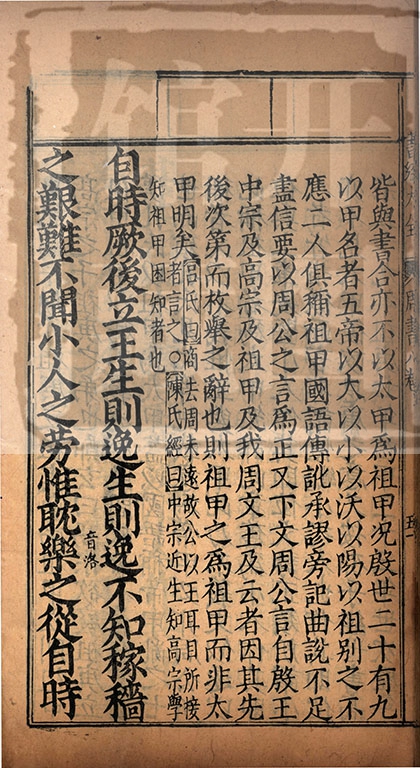 皆與書合亦不以太甲爲祖甲况殷世二十有九
以甲名者五帝以大以小以沃以陽以祖别之不
應二人俱稱祖甲國語傳訛承謬旁記曲說不足
盡信要以周公之言爲正又下文周公言自殷王
中宗及高宗及祖甲及我周文王及云者因其先
後次第而枚舉之辭也則祖甲之爲祖甲而非太
甲明矣呂氏曰商去周未遠故公以王耳目所接
者言之○陳氏經曰中宗近生知高宗學
知祖甲困知者也
自時厥後立王生則逸生則逸不知稼穡
之艱難不聞小人之勞惟耽樂音洛之從自時